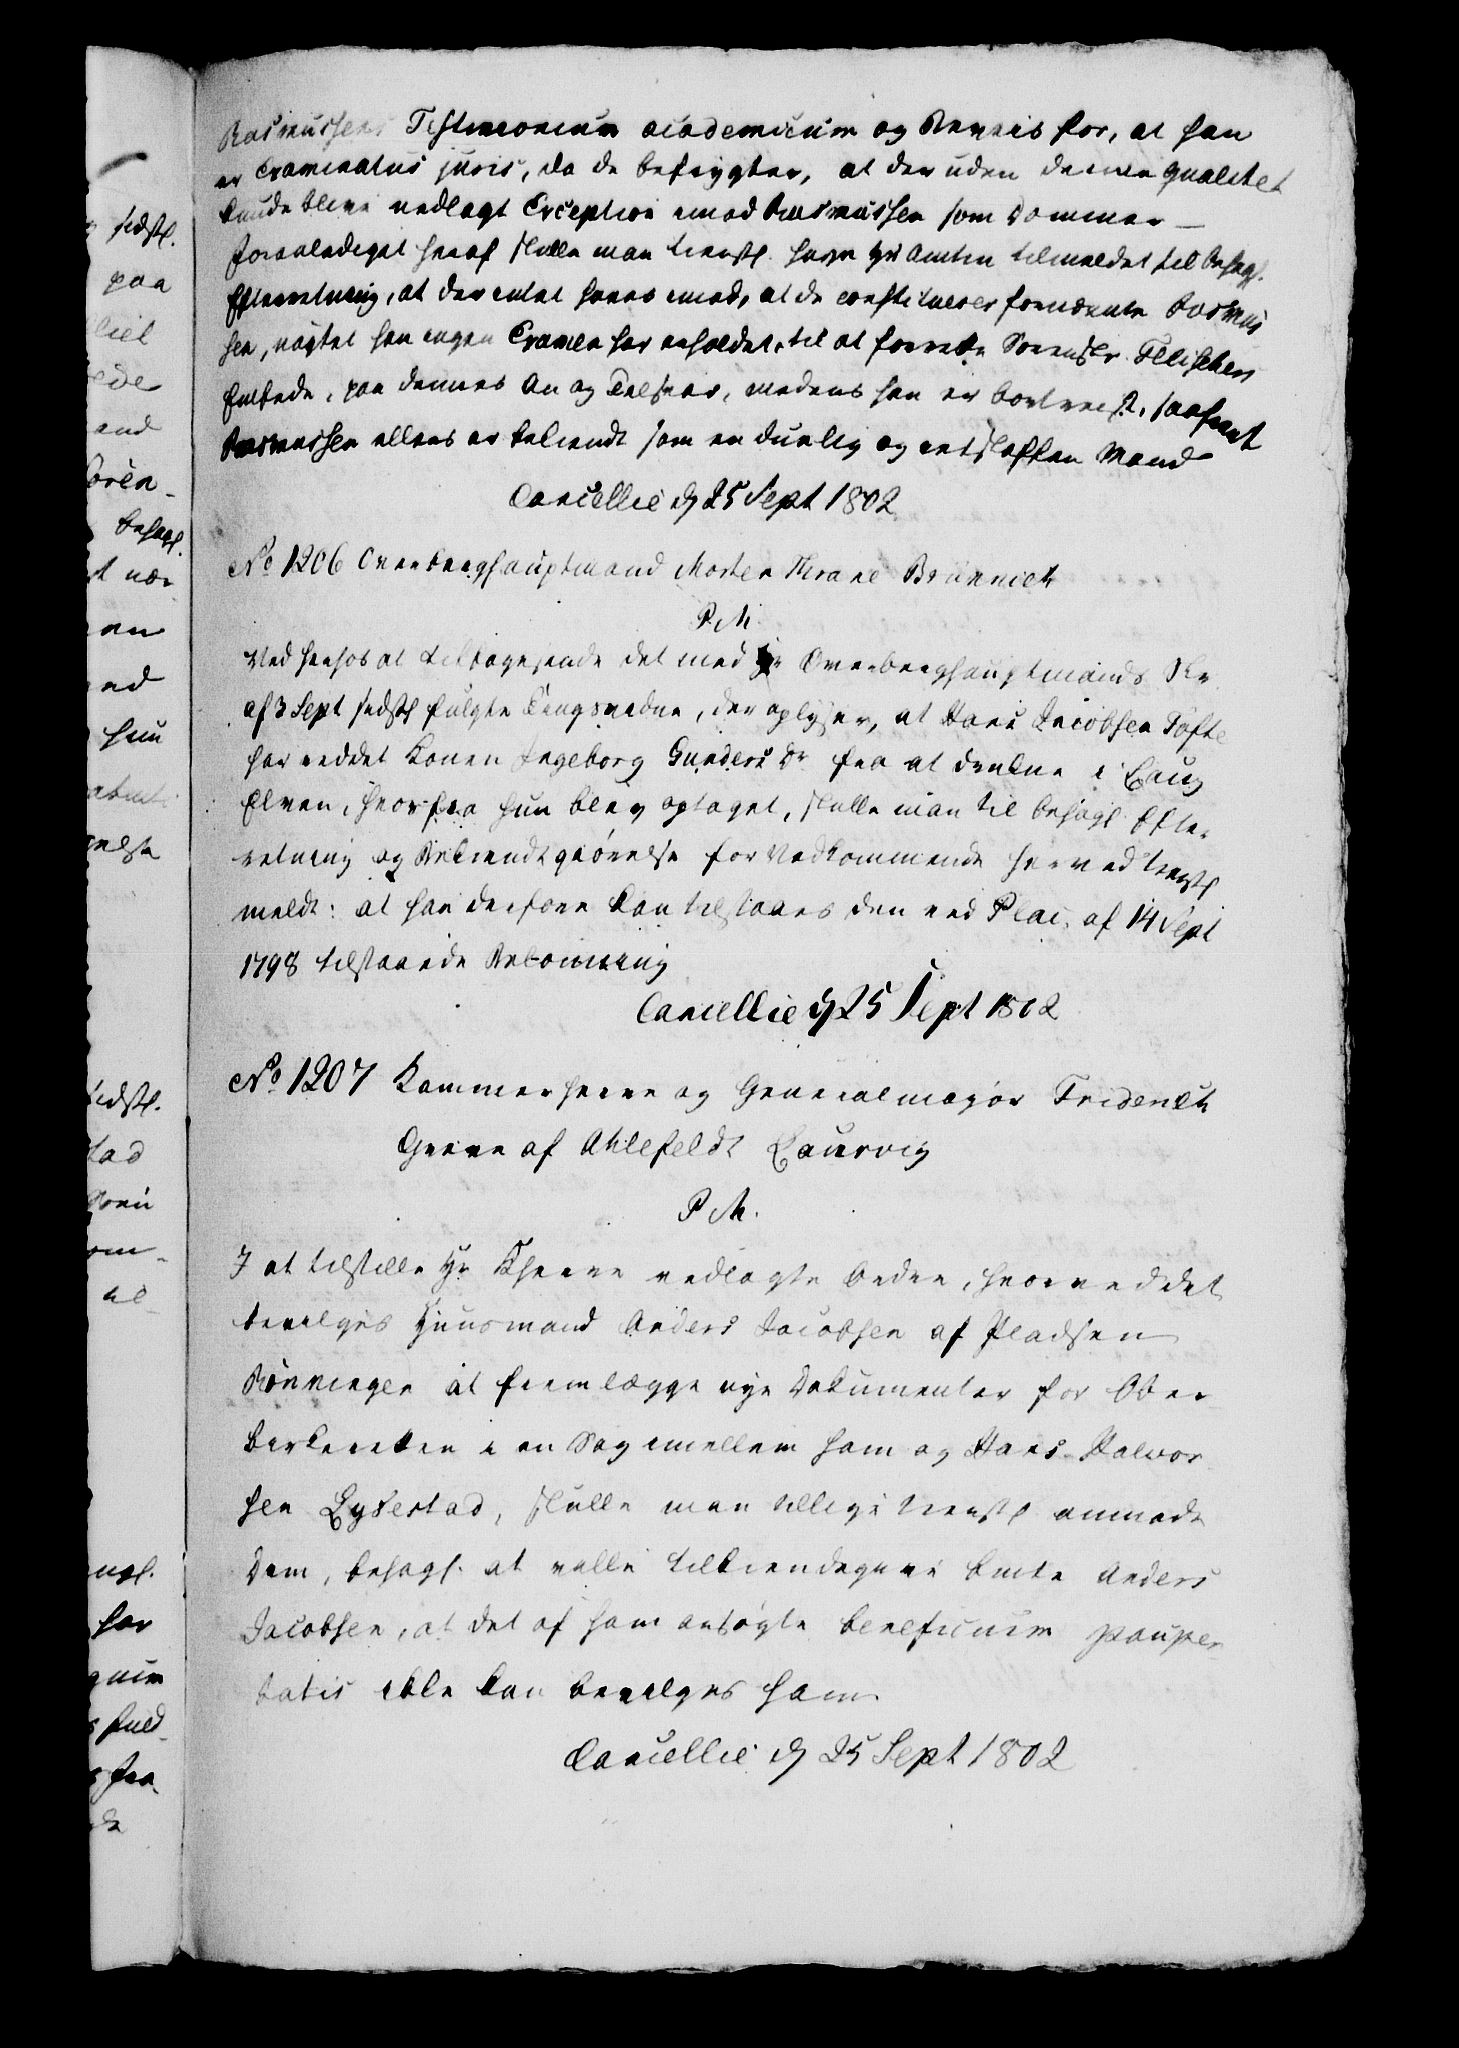 Rasmussens Testimonium academicum og Beviis for, at han
er Examinatus juris, da de befrygter, at der uden denne qualitet
kunde blive nedlagt Exception imod Rasmussen som Dommer
Foranlediget heraf skulle man tienstl. have Hr Amtm tilmeldet til behagl.
Efterretning, at der intet haves imod, at de constituerer forncvnte Rasmus
sen, uagtet han ingen Examen har erholdet, til at forrette Sorenskr.
Embede, paa dennes An og Tilsvar, medens han er bortreist, saafremt
Rasmussen ellers er bekiendt som en duelig og retskaffen Mand
Cancellie d 25 Sept 1802
No 1206 Overberghauptmand Morten Thrane Brünnich
P. M.
Ved herhos at tilbagesende det med Hr Overberghauptmands Skr
af 3 Sept sidstl fulgte Tingsvidne, der oplyser, at Hans Jacobsen Tofte
har reddet Konen Ingeborg Gunders Dr fra at drukne i Laug
Elven, hvorfra hun blev optaget, skulle man til behagl Efter
retning og Bekiendtgiörelse for Vedkommende herved tienstl
meldt: at han derfore kan tilstaaes den ved Plac. af 14 Sept
1798 tilstaaede Belönning
Cancellie d 25 Sept 1802
No 1207 Kammerherre og Generalmajor Friderich
Greve af Ahlefeldt Laurvig
P. M.
I at tilstille Hr Kherre vedlagte Ordre, hvorved det
bevilges Huusmand Anders Jacobsen af Pladsen
Rönningen at fremlægge nye Dokumenter for Ober
birkeretten i en Sag imellem ham og Hans Halvor
sen Lystestad, skulle man tillige tienstl anmode
Dem, behagl. at ville tilkiendegive bmte Anders
Jacobsen, at det af ham ansögte beneficium pauper
tatis ikke kan bevilges ham
Cancellie d 25 Sept 1802